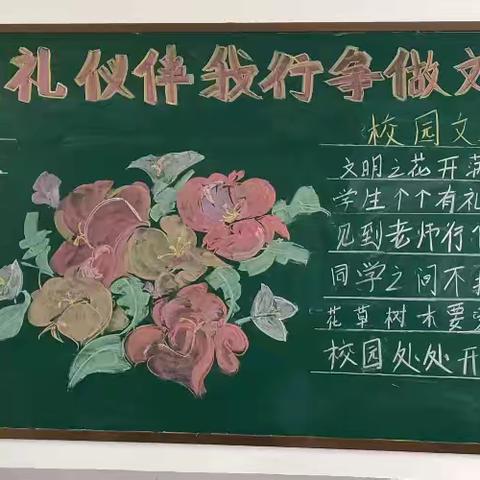 礼仪伴我行争做文
校园文
文明之花开满
学生个个有礼
见到老师行个
同学之间不
花草树木要
校园处处开